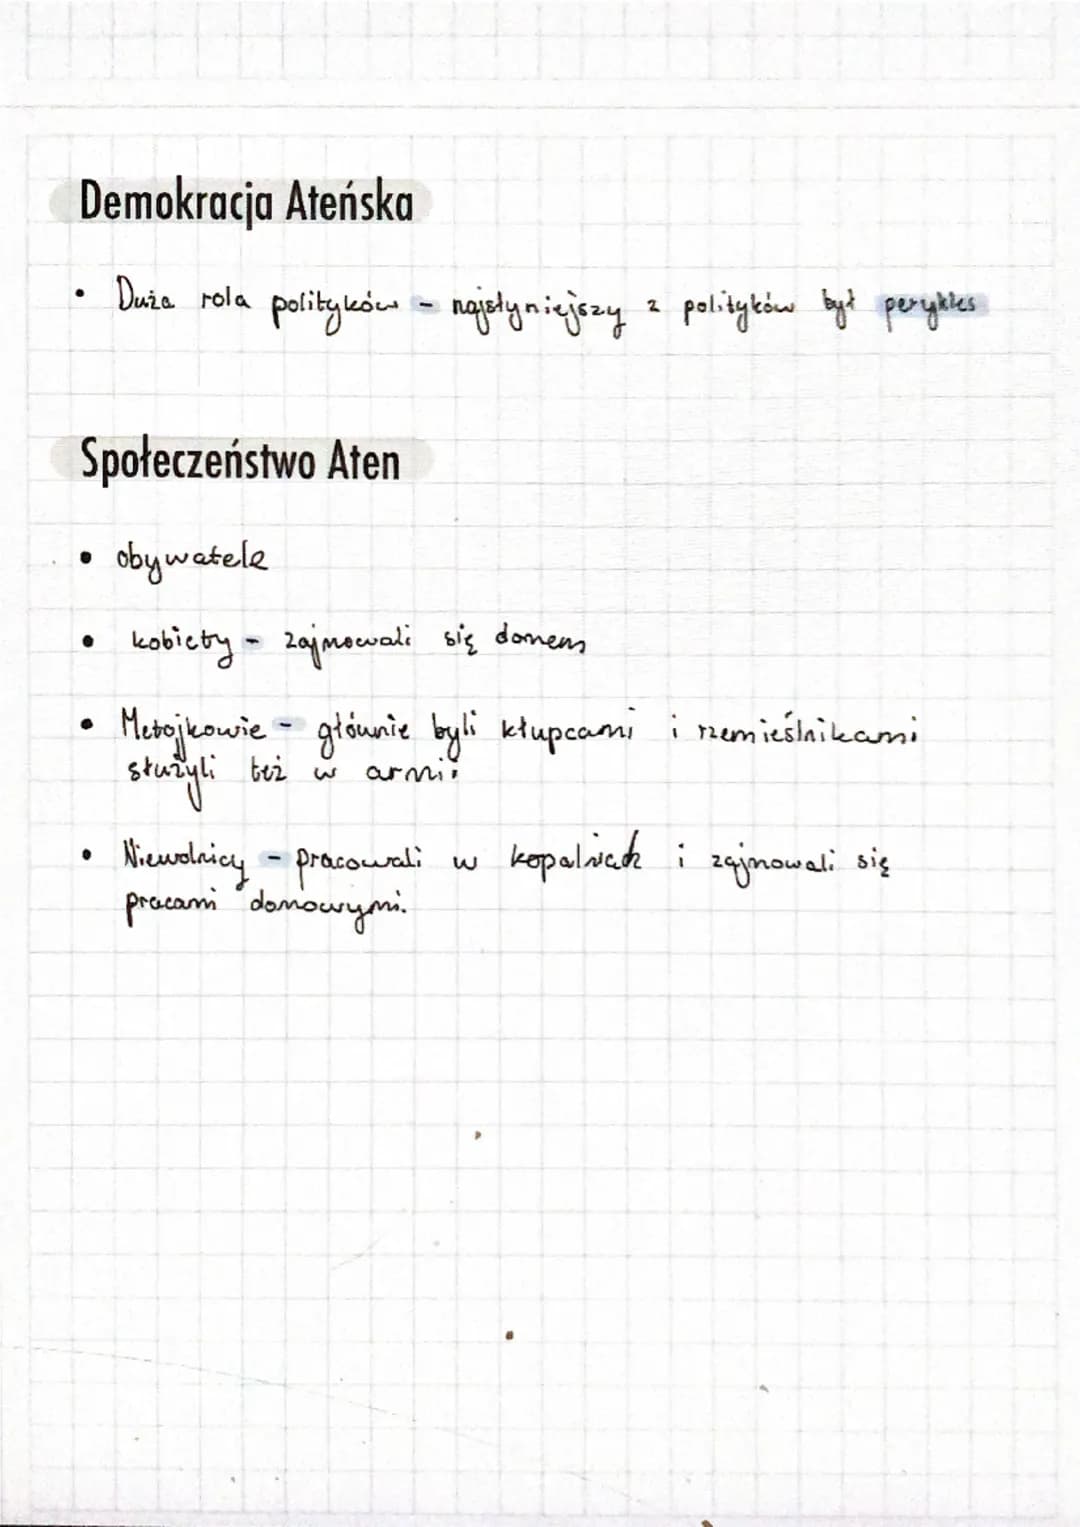 Demokracja Ateńska
• Duża rola polityków - najsłyniejszy z polityków był perykles
Społeczeństwo Aten
• obywatele
• kobiety - zajmowali się domem
• Metojkowie - głównie byli kłupcami i rzemieślnikami
służyli też w armii
• Niewolnicy - pracowali w kopalniach i zajmowali się
pracami domowymi.